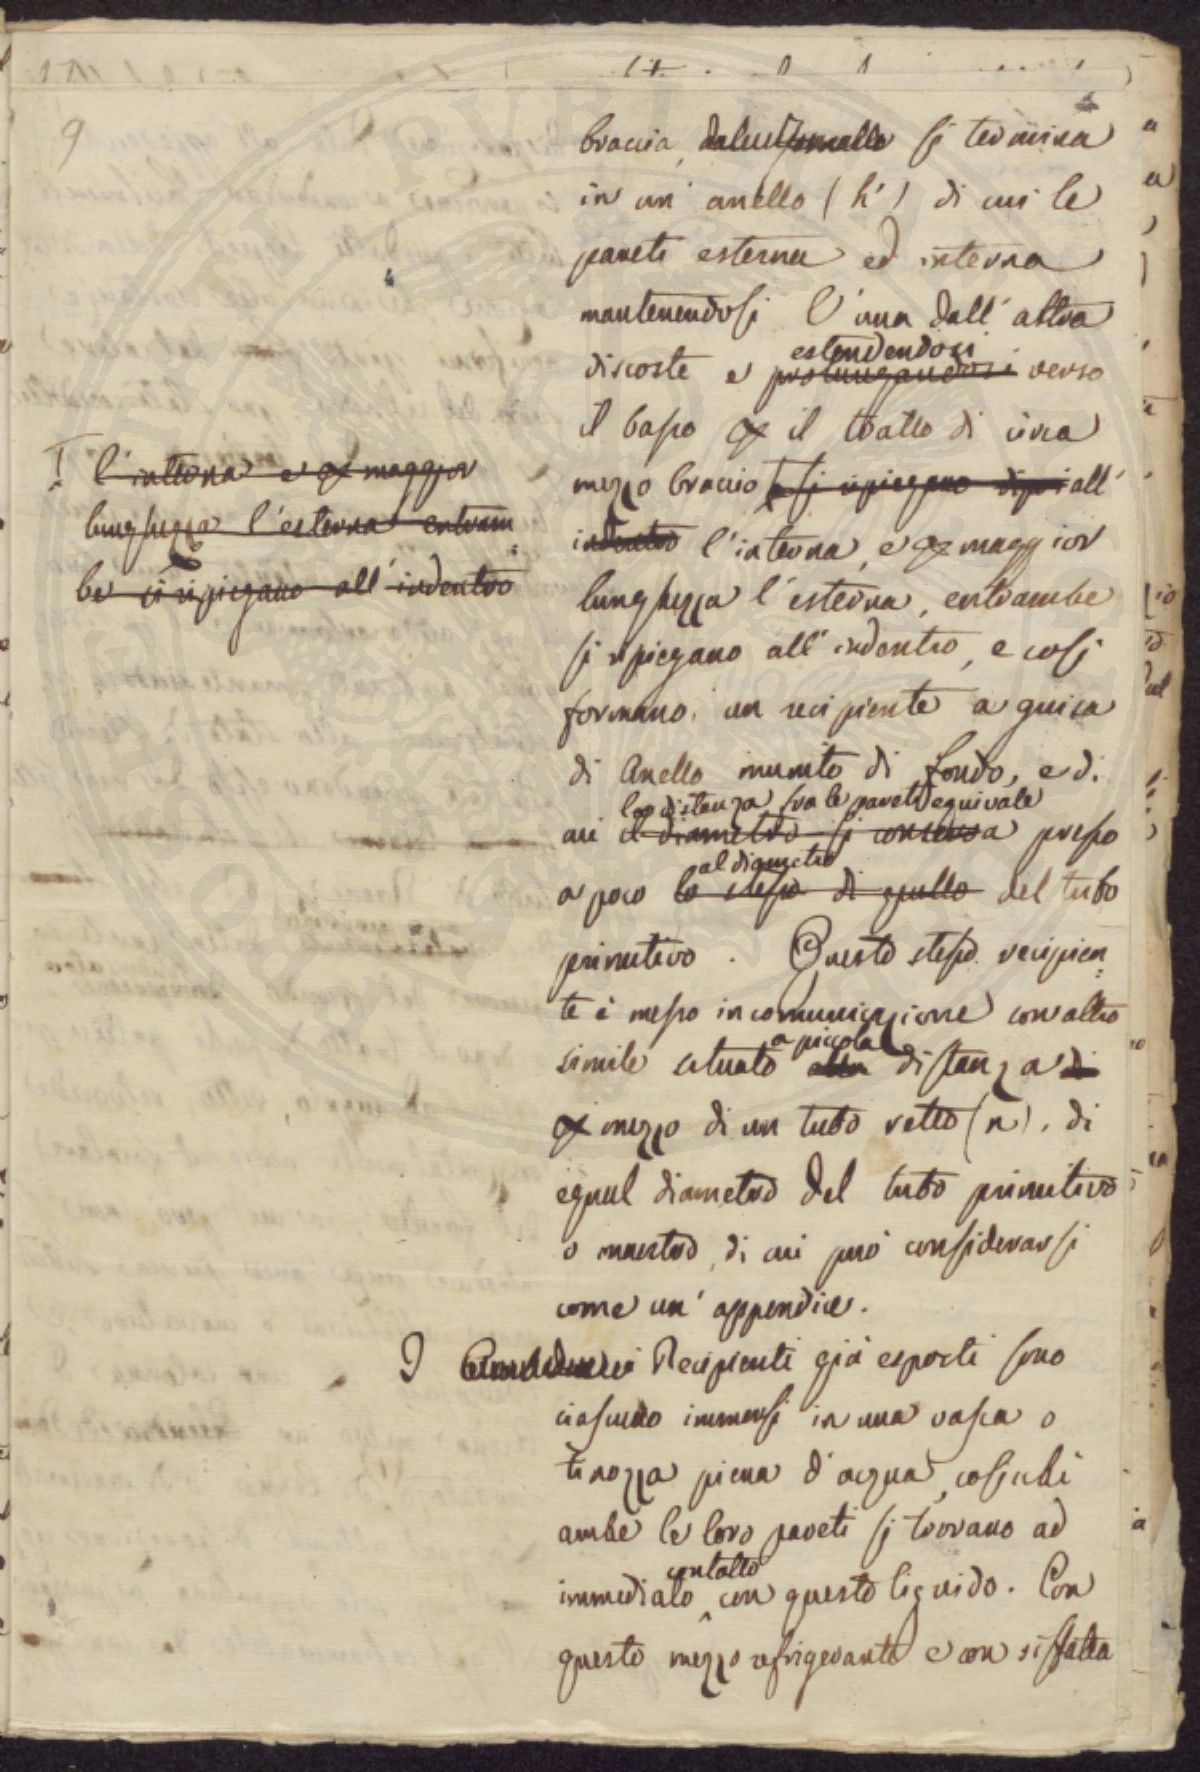 9
braccia, si termina
in un' anello (h') di cui le
pareti esterna ed interna
mantenendosi l'una dall'altra
estendendosi
discoste e prolungandosi verso
il basso per il tratto di circa
mezzo braccio e si ripiegano dipoi all'
indentro l'interna, e per maggior
lunghezza l'esterna, entrambe
si ripiegano all'indentro, e così
formano un recipiente a guisa
di Anello munito di fondo, e di
la distanza fra le pareti equivale
cui il diametro si conserva presso
al diametro
a poco lo stesso di quello del tubo
primitivo. Questo stesso recipien=
te è messo in comunicazione con altro
a piccola
simile situato alla distanza di
per mezzo di un tubo retto (n), di
egual diametro del tubo primitivo
o maestro, di cui può considerarsi
come un' appendice.
I l'interna e per maggior
lunghezza l'esterna entram=
be si ripiegano all'indentro
I Recipienti già esposti sono
ciascuno immersi in una vasca o
tinozza piena d'acqua, cosicchè
ambe le loro pareti si trovano ad
contatto
immediato con questo liquido. Con
questo mezzo refrigerante e con siffatta